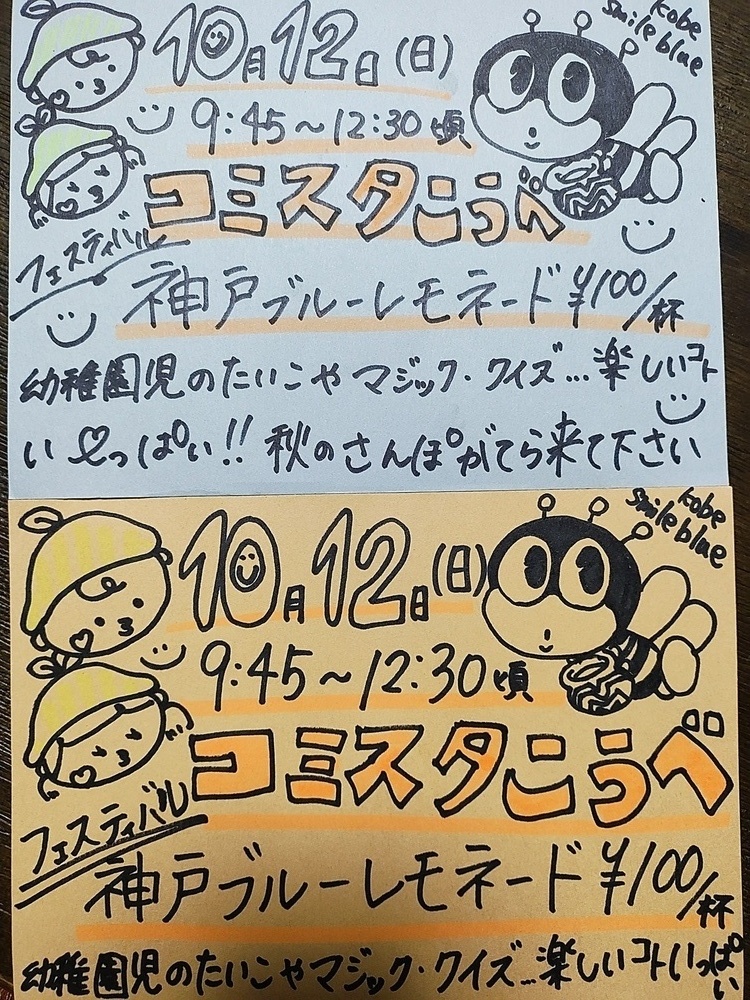 10月12日(日)
kobe
smile blue
9:45～12:30頃
コミスタこうべ
フェスティバル
神戸ブルーレモネード¥100/杯
幼稚園児のたいこやマジック・クイズ…楽しいコト
いっぱい!! 秋のさんぽがてら来て下さい
10月12日(日)
kobe
smile blue
9:45～12:30頃
コミスタこうべ
フェスティバル
神戸ブルーレモネード¥100/杯
幼稚園児のたいこやマジック・クイズ…楽しいコトいっぱい